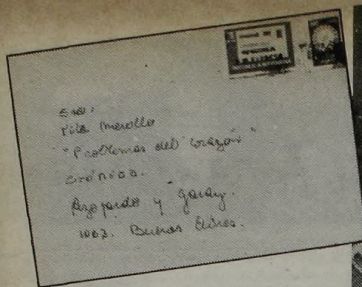 Sra:
Pila Merollo
"Problemas del Corazón"
crónica.
Azopardo y Garay.
1063. Buenos Aires.